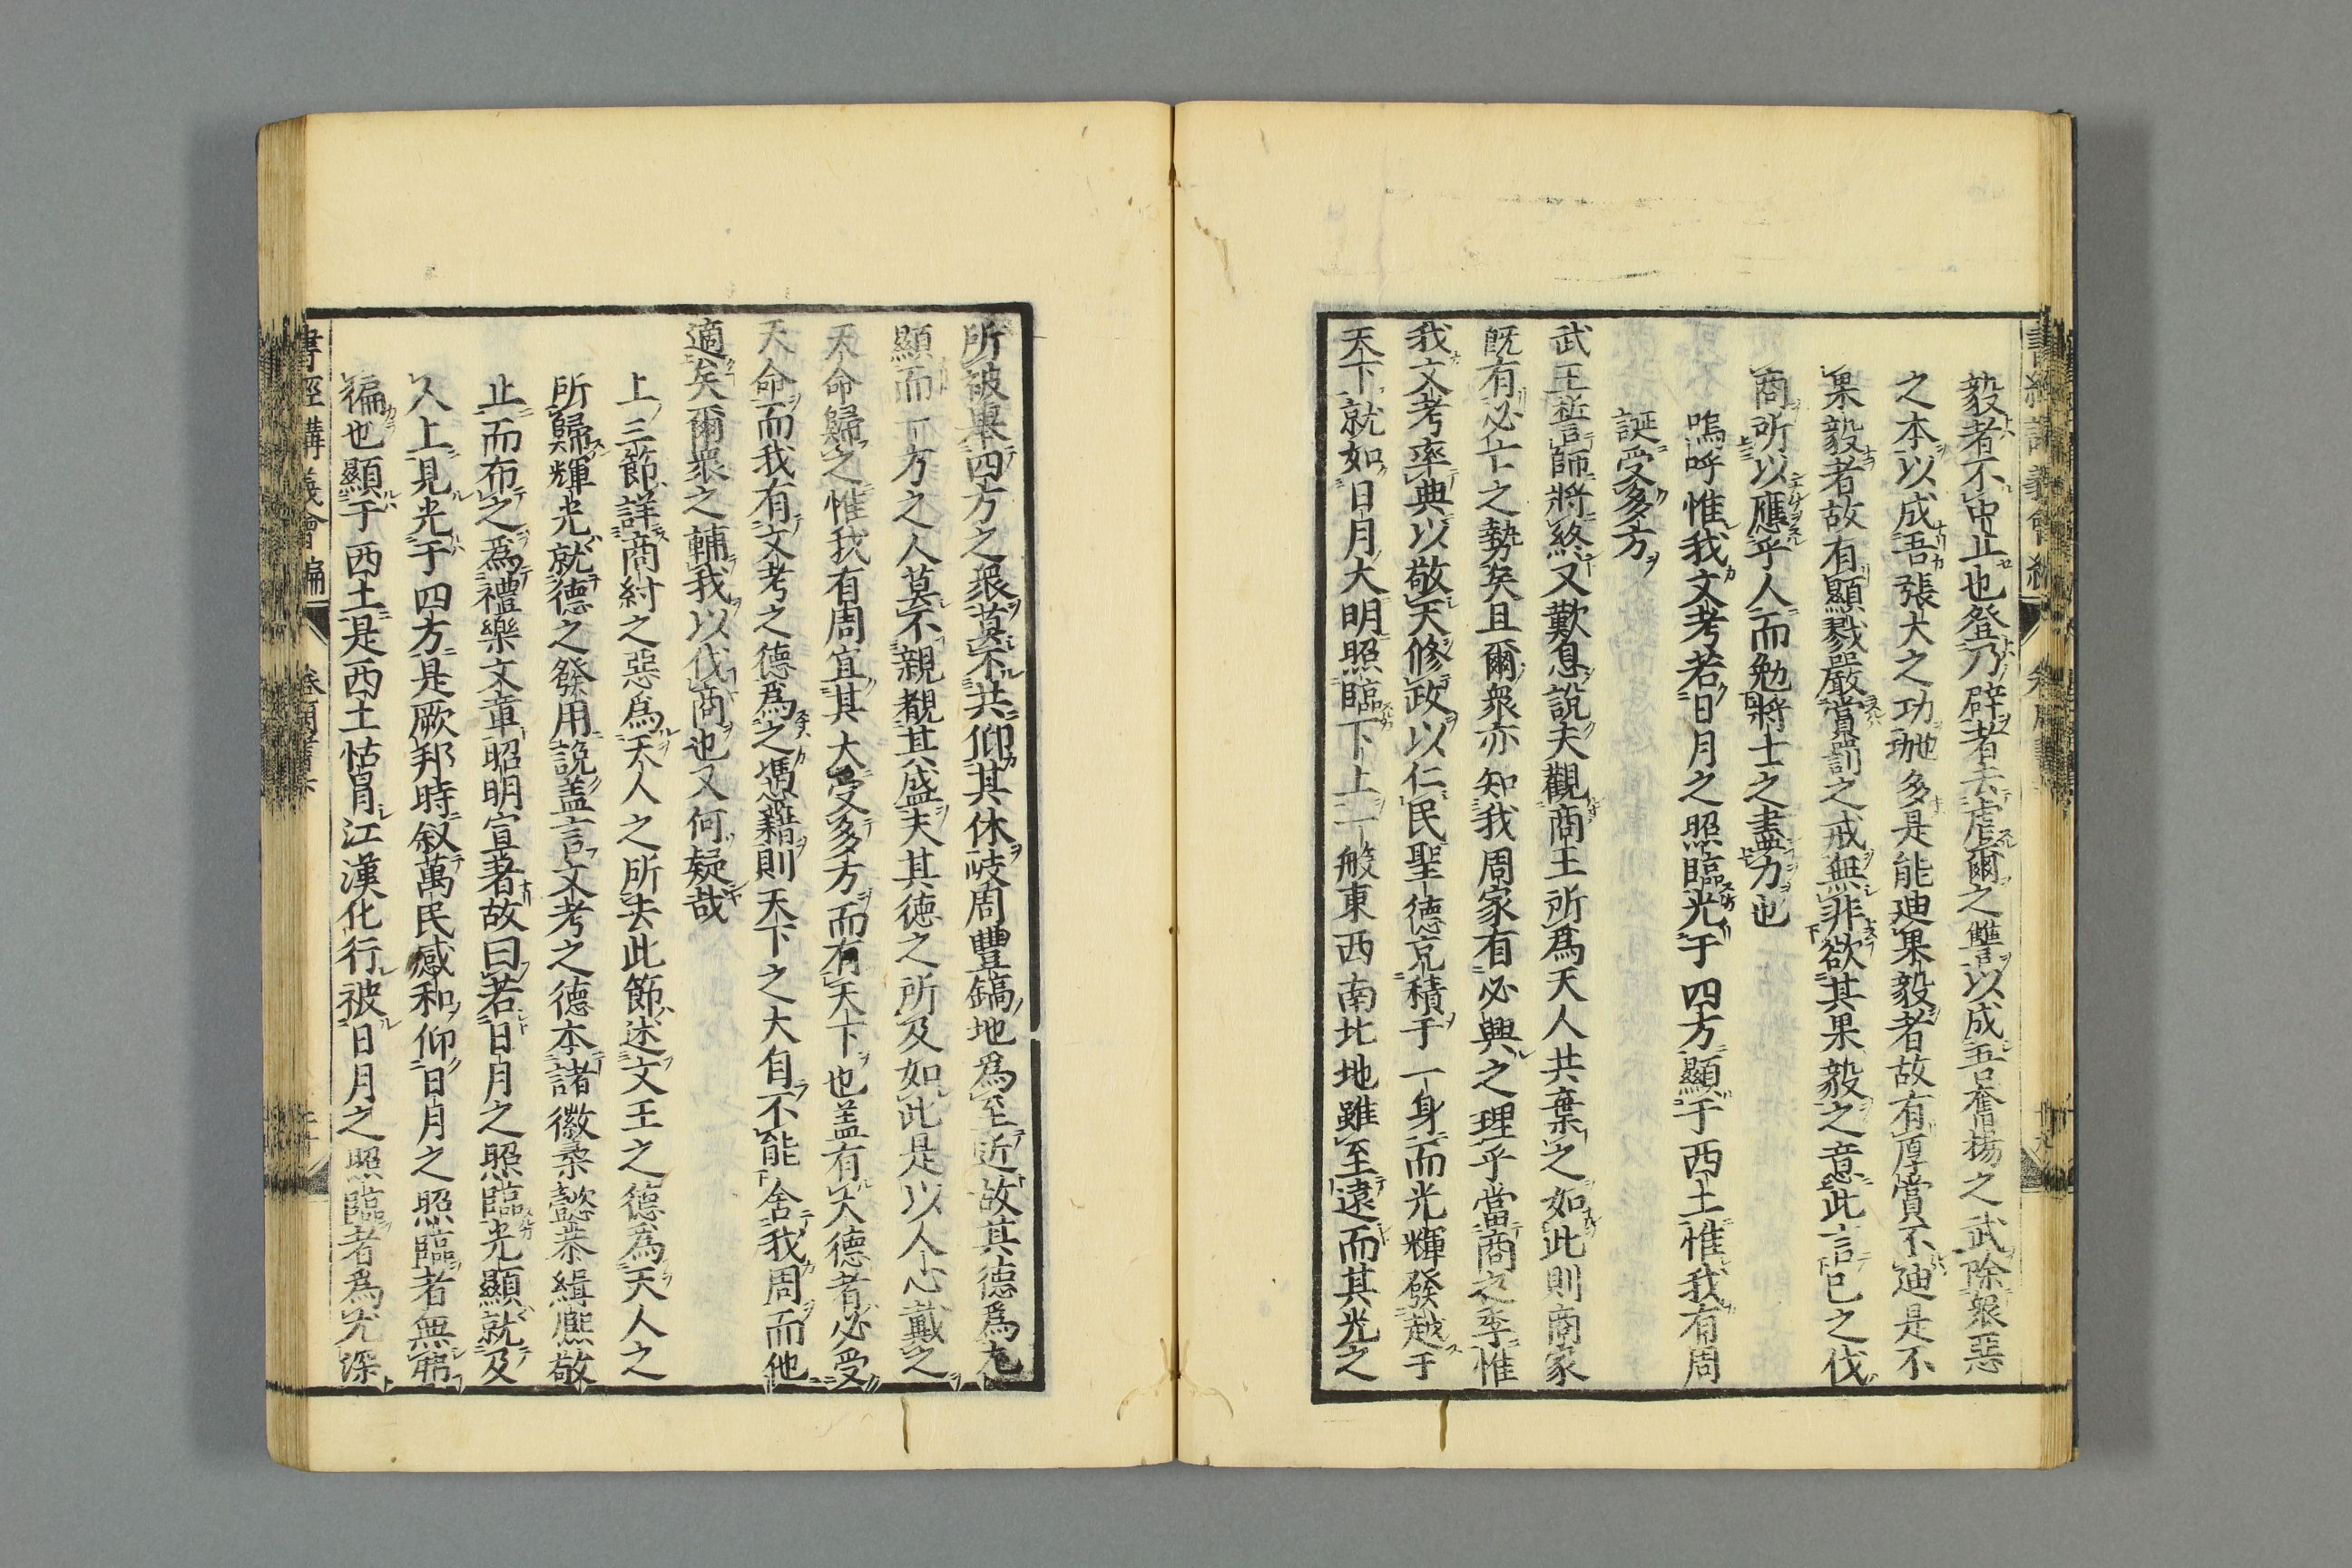 毅者不中止也登乃辟者去虐爾之讐以成吾奮揚之武除衆惡
之本以成吾張大之功 多是能迪果毅者故有厚賞不迪是不
果毅者故有顯戮嚴賞罰之戒無非欲其果毅之意此言已之伐
商所以應乎人而勉將士之盡力也
嗚呼惟我文考若日月之照臨光于四方顯于西土惟我有周
誕受多方
武王誓師將終又歎息說夫觀商王所爲天人共棄之如此則商家
旣有必亡之勢矣且爾衆亦知我周家有必興之理乎當商之季惟
我文考率典以敬天修政以仁民聖德克積于一身而光輝發越于
天下就如日月大明照臨下上一般東西南北地雖至遠而其光之
所被舉四方之衆莫不共仰其休岐周豐鎬地爲至近故其德爲尤
顯而 方之人莫不親覩其盛夫其德之所及如此是以人心戴之
天命歸之惟我有周宜其大受多方而有天下也盖有大德者必受
天命而我有文考之德爲之憑藉則天下之大自不能舍我周而他
適矣爾衆之輔我以伐商也又何疑哉
上三節詳商紂之惡爲天人之所去此節述文王之德爲天人之
所歸輝光就德之發用說盖言文考之德本諸徽柔懿恭緝熙敬
止而布之爲禮樂文章昭明宣著故曰若日月之照臨光顯就及
人上見光于四方是厥邦時叙萬民感和仰日月之照臨者無弗
徧也顯于西土是西土怙冒江漢化行被日月之照臨者爲尤深
書經講義會編 卷 周書